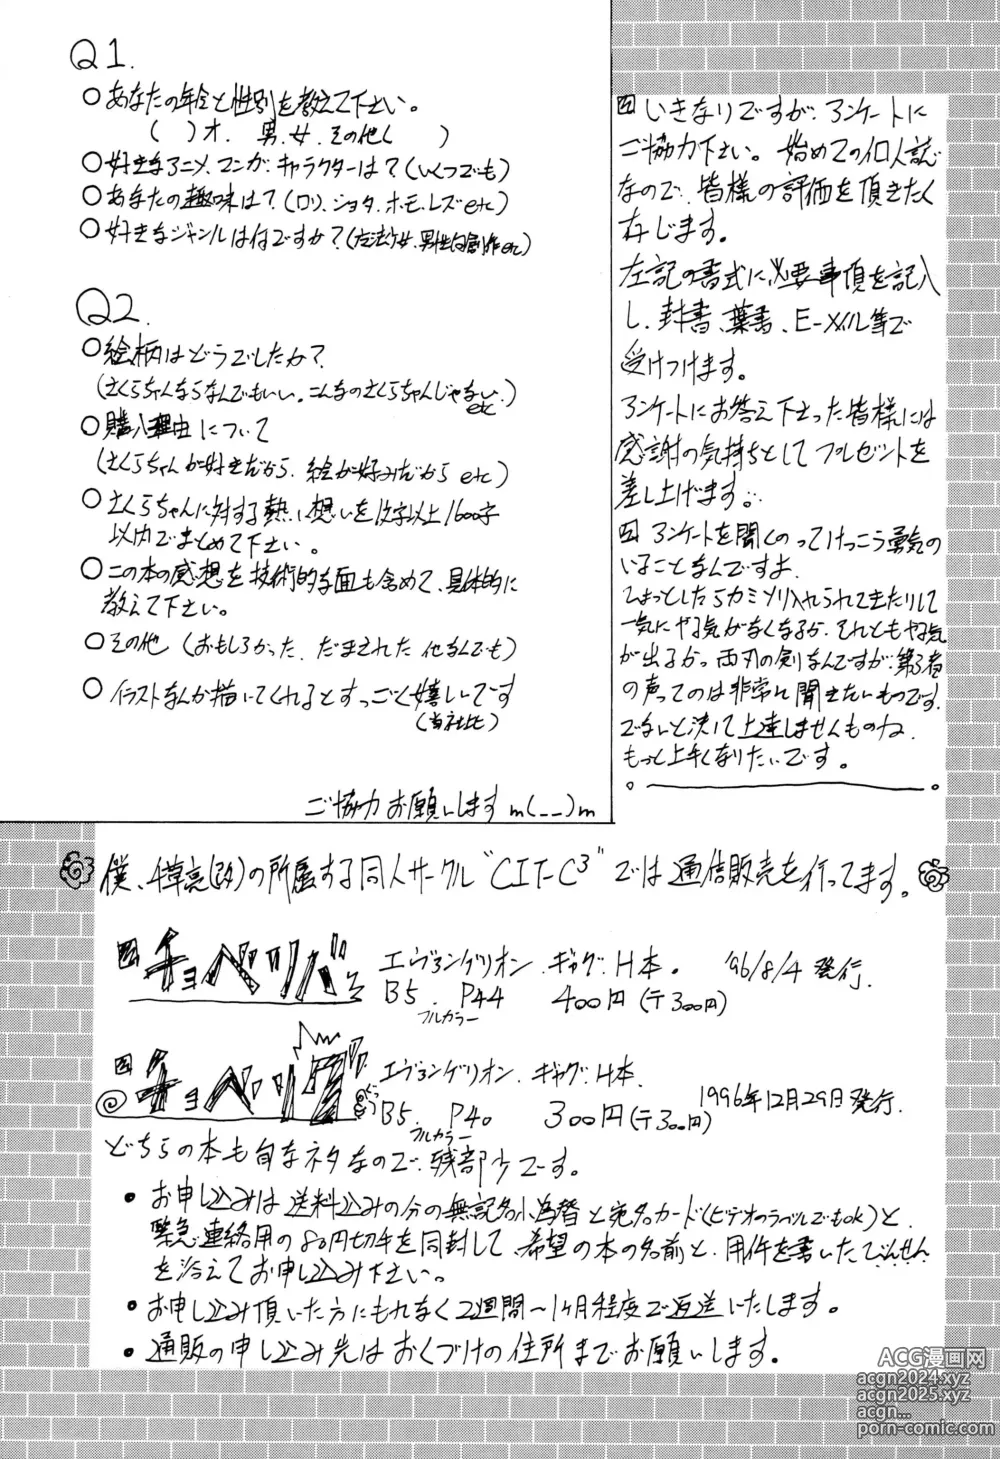 Q1.
○あなたの年令と性別を教えて下さい。
（　）才. 男.女.その他（　　）
○好きなアニメ、マンガ、キャラクターは？（いくつでも）
○あなたの趣味は？（ロリ、ショタ、ホモ、レズetc）
○好きなジャンルは何ですか？（魔法少女、男性向創作etc）
Q2.
○絵柄はどうでしたか？
（さくらちゃんならなんでもいい。こんなのさくらちゃんじゃない. etc）
○購入理由について
（さくらちゃんが好きだから、絵が好みだから etc）
○さくらちゃんに対する熱い想いを1文字以上1600字
以内でまとめて下さい。
○この本の感想を技術的な面も含めて、具体的に
教えて下さい。
○その他（おもしろかった、だまされた 他なんでも）
○イラストなんか描いてくれるとすっごく嬉しいです
（当社比）
ご協力お願いします m(__)m
いきなりですが、アンケートに
ご協力下さい。始めての個人誌
なので、皆様の評価を頂きたく
存じます。
左記の書式に必要事項を記入
し、封書、葉書、E-メイル等で
受けつけます。
アンケートにお答え下さった皆様には
感謝の気持ちとしてプレゼントを
差し上げます。
アンケートを聞くのってけっこう勇気の
いることなんですよ.
ひょっとしたらカミソリ入れられてきたりして
一気にやる気がなくなるか、それともやる気
が出るか。両刃の剣なんですが、第3者
の声ってのは非常に聞きたいものです.
でないと決して上達しませんものね.
もっと上手くなりたいです。
僕、草亮(改)の所属する同人サークル"CIT-C³"では通信販売を行ってます。
チョベリバ
エヴァンゲリオン. ギャグ. H本. '96/8/4 発行.
B5. P44 400円(〒300円)
フルカラー
チョベリグ
エヴァンゲリオン. ギャグ. H本.
B5. P40 300円(〒300円) 1996年12月29日発行.
フルカラー
どちらの本も旬なネタなので、残部少です。
・お申し込みは送料込みの分の無記名小為替と宛名カード(ビデオのラベルでもok)と
緊急連絡用の80円切手を同封して、希望の本の名前と、用件を書いたびんせん
を添えてお申し込み下さい。
・お申し込み頂いた方にもれなく2週間〜1ヶ月程度で返送いたします。
・通販の申し込み先はおくづけの住所までお願いします。
ACG漫画网
acgn2024.xyz
acgn2025.xyz
acgn...
porn-comic.com